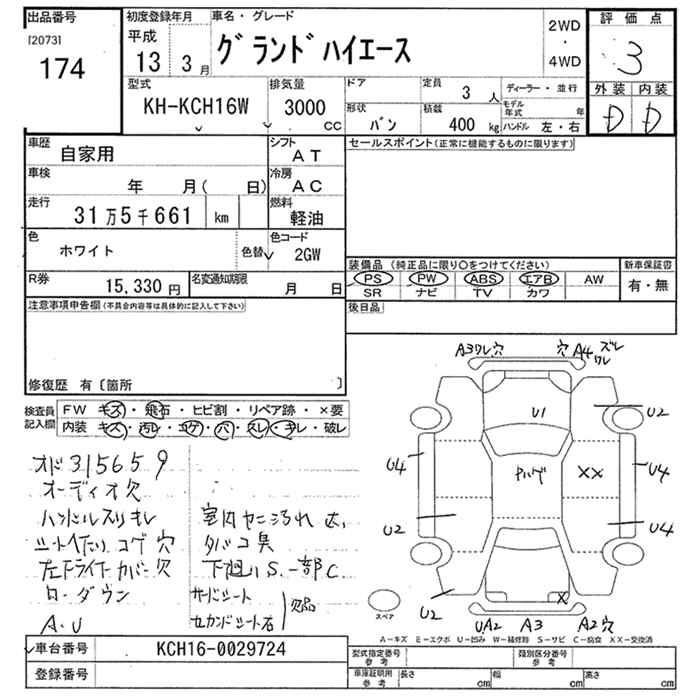 出品番号 初度登録年月 車名・グレード 評価点
[2073] 平成 グランドハイエース 2WD
174 13 3月 ・ 3
4WD
型式 排気量 ドア 定員 ディーラー・並行 外装 内装
KH-KCH16W 3000 3人 モデル年式 年 D D
CC 形状 バン 積載 400kg ハンドル 左・右
車歴 自家用 シフト AT セールスポイント(正常に機能するものに限ります)
車検 年 月( 日) 冷房 AC
走行 31万5千661 km 燃料 軽油
色 ホワイト 色替 色コード 2GW
装備品 (純正品に限り○をつけてください) 新車保証書
R券 15,330円 名変通知期限 月 日 PS PW ABS エアB AW 有・無
SR ナビ TV カワ
注意事項申告欄(不具合内容等は具体的に記入して下さい) 後日品
修復歴 有〔箇所 〕
検査員記入欄 FW キズ・飛石・ヒビ割・リペア跡・×要
内装 キズ・汚レ・コゲ・穴・スレ・キレ・破レ
A3ワレ穴 穴A4ズレワレ
U1 U2
U4 ヤハゲ XX U4
U2 U4
U2 X
UA2 A3 A2穴
スペア
オド315659
オーディオ欠
ハンドルスリキレ 室内ヤニ汚れ大
シートヘタリコゲ穴 タバコ臭
左下ライナーカバー欠 下廻りS.一部C
ローダウン サードシート
A.U セカンドシート右 欠品
A−キズ E−エクボ U−凹み W−補修跡 S−サビ C−腐食 XX−交換済
車台番号 KCH16-0029724 型式指定番号 参考 類別区分番号 参考
登録番号 車庫証明用 参考 長さ cm 幅 cm 高さ cm